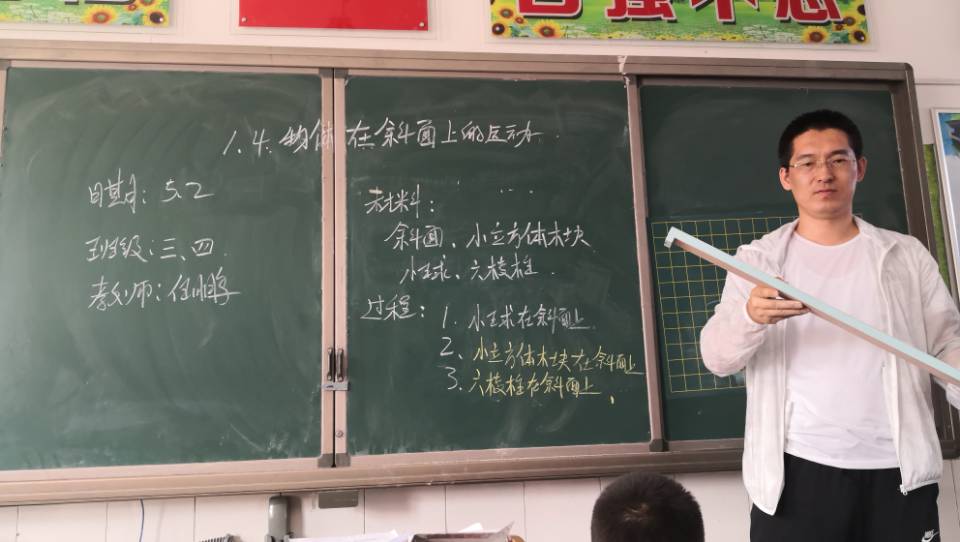 自强不息
1.4.物体在斜面上的运动
日期:5.2
班级:三、四
教师:任
材料:
斜面、小立方体木块
小球、六棱柱
过程:1.小球在斜面上
2、小立方体木块在斜面上
3、六棱柱在斜面上